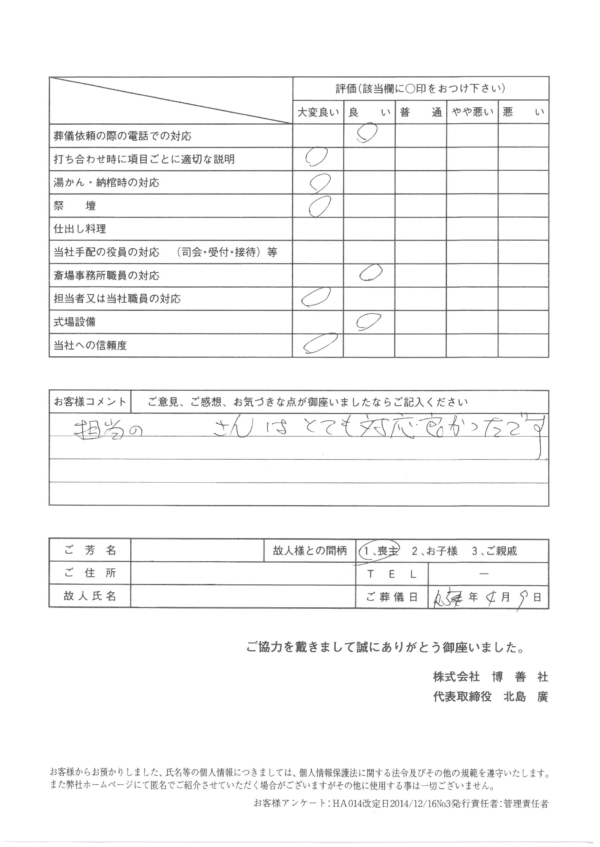 評価(該当欄に○印をおつけ下さい)
大変良い 良い 普通 やや悪い 悪い
葬儀依頼の際の電話での対応
打ち合わせ時に項目ごとに適切な説明
湯かん・納棺時の対応
祭壇
仕出し料理
当社手配の役員の対応 (司会・受付・接待)等
斎場事務所職員の対応
担当者又は当社職員の対応
式場設備
当社への信頼度
お客様コメント ご意見、ご感想、お気づきな点が御座いましたならご記入ください
担当の さんはとても対応良かったです
ご芳名 故人様との間柄 1、喪主 2、お子様 3、ご親戚
ご住所 TEL ―
故人氏名 ご葬儀日 年 4月9日
ご協力を戴きまして誠にありがとう御座いました。
株式会社 博善社
代表取締役 北島 廣
お客様からお預かりしました、氏名等の個人情報につきましては、個人情報保護法に関する法令及びその他の規範を遵守いたします。
また弊社ホームページにて匿名でご紹介させていただく場合がございますがその他に使用する事は一切ございません。
お客様アンケート:HA014改定日2014/12/16No3発行責任者:管理責任者